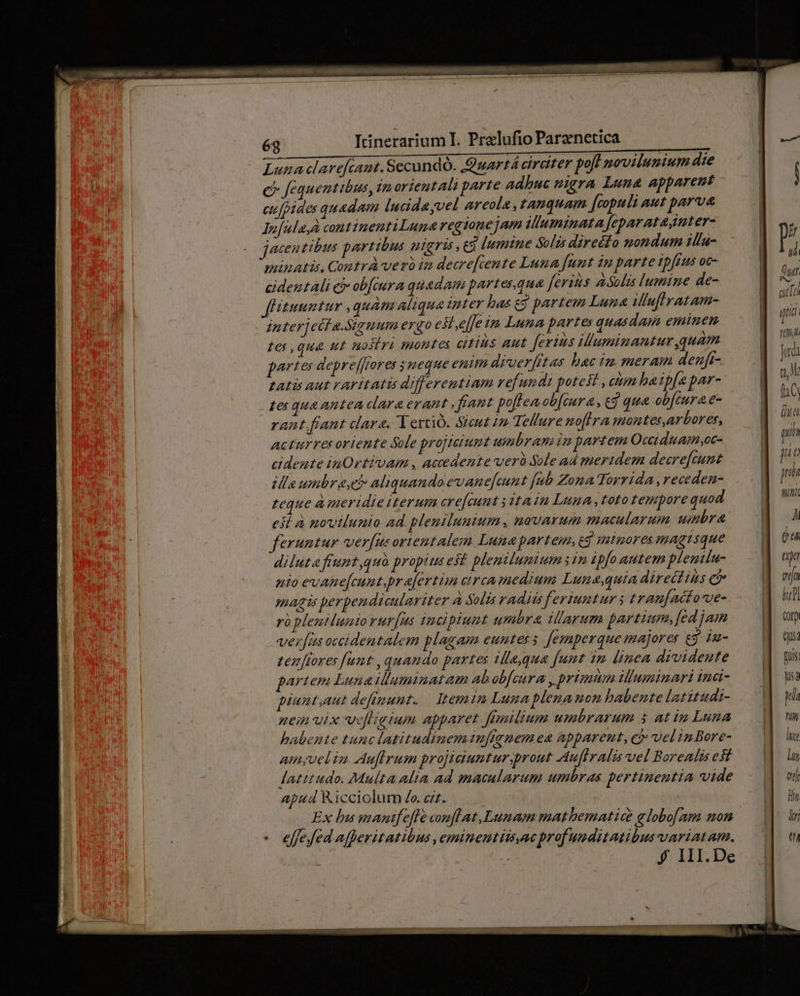 68 Itinerarium I. Prælusio Parænetica
Luna clarescant. Secundò. Quartâ circiter post novilunium die
& sequentibus, in orientali parte adhuc nigra Lunæ apparent
cuspides quædam lucidæ, vel areolæ, tanquam scopuli aut parvæ
Insulæ, à continenti Lunæ regione jam illuminata separatæ, inter-
jacentibus partibus nigris, & lumine Solis directo nondum illu-
minatis. Contrà verò in decrescente Luna sunt in parte ipsius oc-
cidentali & obscura quædam partes, quæ seriùs à Solis lumine de-
stituuntur, quàm aliquæ inter has & partem Lunæ illustratam
interjectæ. Signum ergo est, esse in Luna partes quasdam eminen-
tes, quæ ut nostri montes citiùs aut seriùs illuminantur, quàm
partes depressiores; neque enim diversitas hæc in meram densi-
tatis aut raritatis differentiam refundi potest, cùm hæ ipsæ par-
tes quæ antea claræ erant, fiant postea obscuræ, & quæ obscuræ e-
rant fiant claræ. Tertiò. Sicut in Tellure nostra montes, arbores,
ac turres oriente Sole projiciunt umbram in partem Occiduam, oc-
cidente in Ortivam, accedente verò Sole ad meridem decrescunt
illæ umbræ, & aliquando evanescunt sub Zona Torrida, receden-
teque à meridie iterum crescunt; ita in Luna, toto tempore quod
est à novilunio ad plenilunium, navarum macularum umbræ
feruntur versus orientalem Lunæ partem, & minores magisque
dilutæ fiunt, quò propius est plenilunium; in ipso autem plenilu-
nio evanescunt, præsertim circa medium Lunæ, quia directiùs &
magis perpendiculariter à Solis radiis feriuntur; transacto ve-
rò plenilunio rursus incipiunt umbræ illarum partium, sed jam
versus occidentalem plagam euntes; semperque majores & in-
tensiores sunt, quando partes illæ, quæ sunt in linea dividente
partem Lunæ illuminatam ab obscura, primùm illuminari inci-
piunt, aut desinunt. Item in Luna plena non habente latitudi-
nem vix vestigium apparet similium umbrarum; at in Luna
habente tunc latitudinem insignem eæ apparent, & vel in Bore-
am, vel in Austrum projiciuntur, prout Australis vel Borealis est
latitudo. Multa alia ad macularum umbras pertinentia vide
apud Ricciolum lo. cit.
Ex his manifestè constat, Lunam mathematicè globosam non
esse, sed asperitatibus, eminentiis, ac profunditatibus variatam.
§ III. De